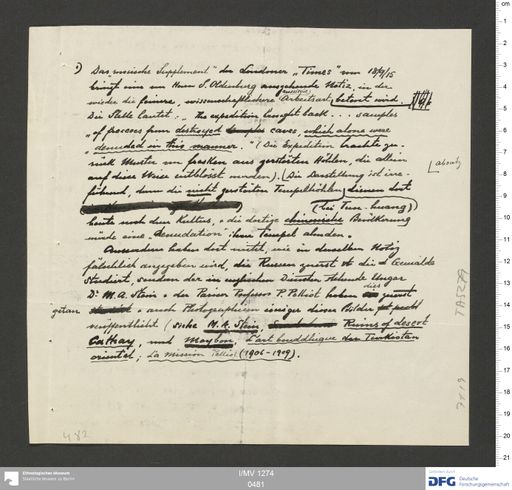 Das „russische Supplement" der Londoner „Times" vom 18/9/15
bringt eine von Herrn S. Oldenburg ausgehende Notiz, in der
wieder die feinere, wissenschaftlichere Arbeitsart, betont wird.
Die Stelle lautet: „The expedition brought back ... samples
„of frescoes from destroyed caves, which alone were
denuded in this manner." (Die Expedition brachte zu-
rück Muster von Fresken aus zerstörten Höhlen, die allein
auf diese Weise entblösst wurden). Die Darstellung ist irre-
führend, denn die nicht zerstörten Tempelhöhlen dienen dort
(bei Tun-huang)
heute noch dem Kultus, & die dortige chinesische Bevölkerung
würde eine „Denudation" ihrer Tempel ahnden.
Ausserdem haben dort nicht, wie in derselben Notiz
fälschlich angegeben wird, die Russen zuerst die Gemälde
studiert, sondern der in englischen Diensten stehende Ungar
Dr M. A. Stein & der Pariser Professor P. Pelliot haben dies zuerst
getan & auch Photographieen einiger dieser Bilder
veröffentlicht (siehe M. A. Stein, Ruins of desert
Cathay, und Maybon, L'art bouddhique du Turkistan
oriental; La mission Pelliot (1906-1909).
[absatz
TA 5262
482
Ethnologisches Museum
Staatliche Museen zu Berlin
I/MV 1274
0481
Gefördert durch
DFG
Deutsche
Forschungsgemeinschaft
cm
1
2
3
4
5
6
7
8
9
10
11
12
13
14
15
16
17
18
19
20
21